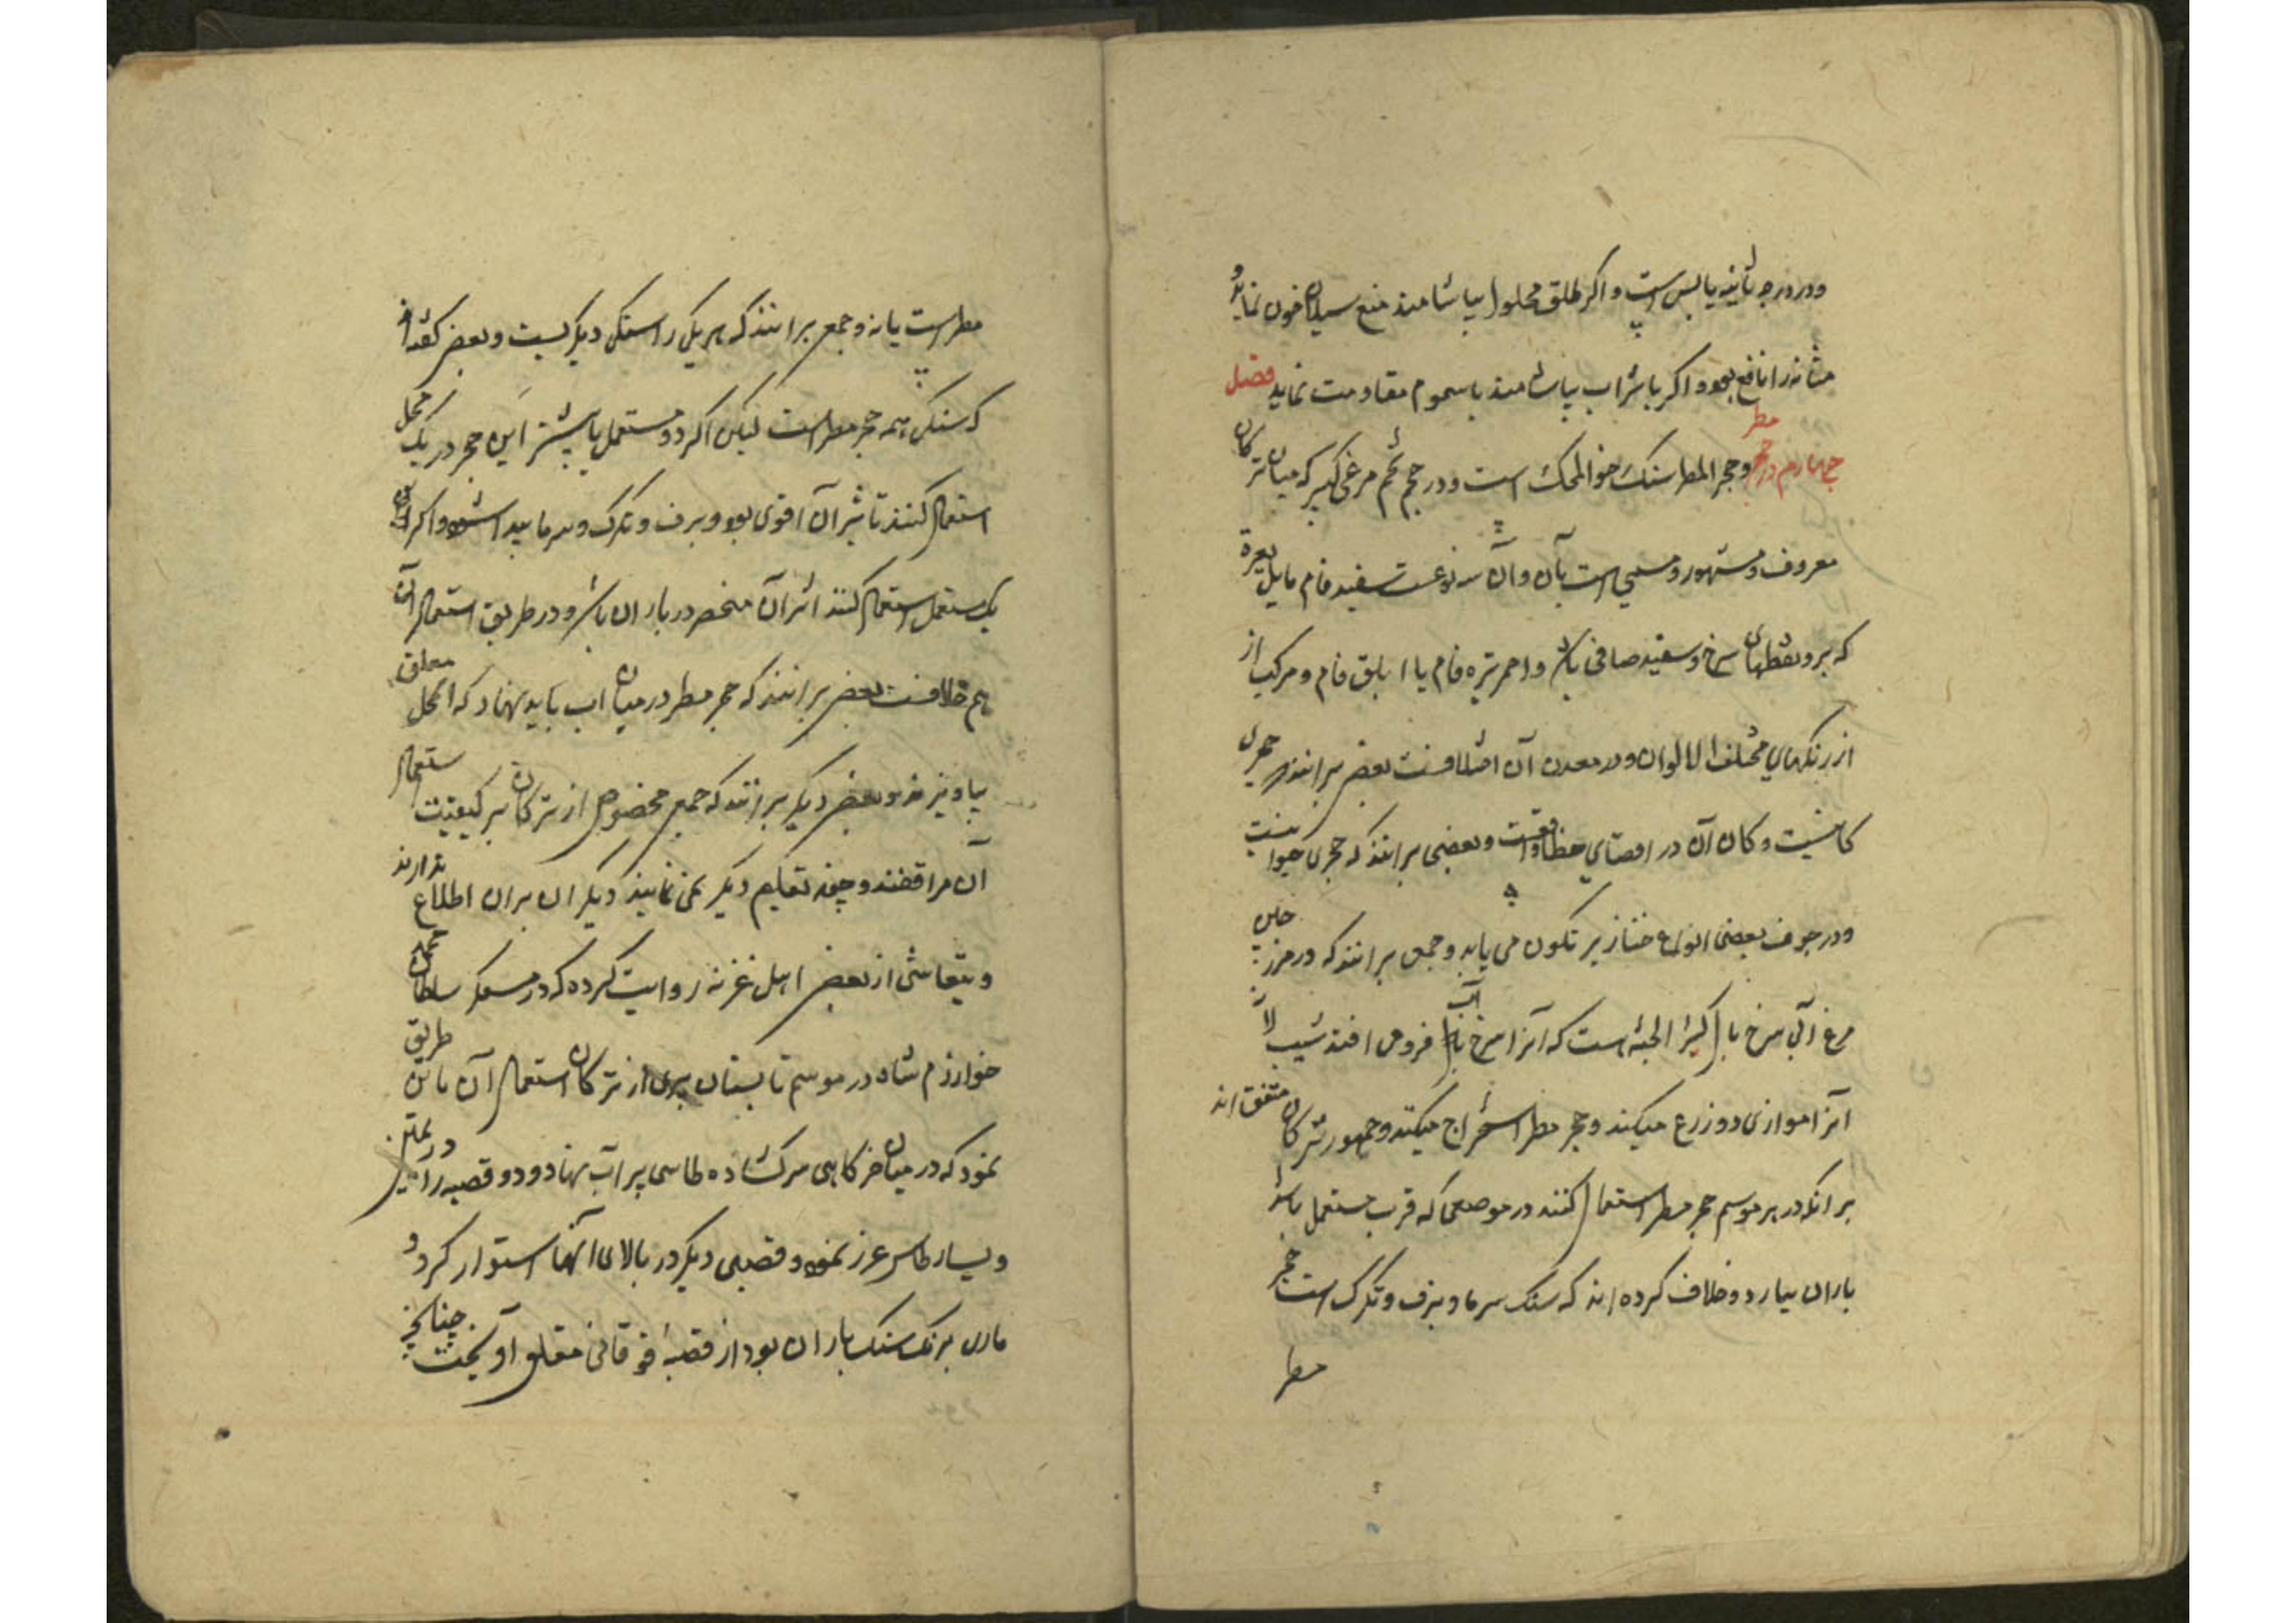 ودر درجه ثانیه یابس است و اکر طلق محلول بیاشامند منع سیلان خون نماید و
مثانه را نافع بود و اکر باشراب بیاشامند باسموم مقاومت نماید فصل
چهارم در حجر مطر و حجر المطر سنک رخو المحک است و در حجم تخم مرغی کبیر که میان ترکان
معروف و مشهور و مسمی است بآن و آن سه نوعست سفید فام مایل بغبرة
که برو نقطهای سرخ و سفید صافی باشد و احمر تیره فام یا ابلق فام و مرکب از
از رنکهای مختلف الالوان و در معدن آن اختلافست بعضی برانند که حجری
کانیست و کان آن در اقصای خطا واقعست و بعضی برانند که حجری حیوانیست
و در جوف بعضی انواع خنازیر تکون می یابد و جمعی برانند که در مرز
مرغ آبی سرخ بال کبیر الجثه است که آنرا سرخ باب فروص افند شیب لان
آنرا موازی دو زرع میکند و حجر مطر استخراج میکنند و جمهور ترکان متفق اند
بر آنکه در هر موسم حجر مطر استعمال کنند در موضعی که قرب مستعمل باشد
باران ببارد و خلاف کرده اند که سنک سرما و برف و تکرک است حجر
مطر
مطر است یا نه و جمعی برانند که هر یکی را سنکی دیکرست و بعضی کفته اند
که سنک همه حجر مطر است لیکن اکر دو مستعمل یا بیشتر این حجر در یک محل
استعمال کنند تاثیر آن اقوی بود و برف و تکرک و سرما پیدا شود و اکر
یک مستعمل استعمال کنند اثر آن منحصر در باران باشد و در طریق استعمال آن
هم خلافست بعضی برانند که حجر مطر در میان اب باید نهاد که از محل معلق
بیاویزند و بعضی دیکر برانند که جمعی مخصوص از ترکان بر کیفیت استعمال
آن مراقفند و چون تعلیم دیکر نمی نمایند دیکران بران اطلاع ندارند
و تیفاشی از بعضی اهل غزنه روایت کرده که در معسکر سلطان محمد
خوارزم شاه در موسم تابستان پیری از ترکان استعمال آن باین طریق
نمود که در میان خرکاهی سرکشاده طاسی پر آب نهاد و دو قصبه را در یمین
و یسار طاس غرز نمود و قصبی دیکر در بالای آنها استوار کرد و
ماری برنک سنک باران بود از قصبۀ فوقانی معلق آویخت چنانچه